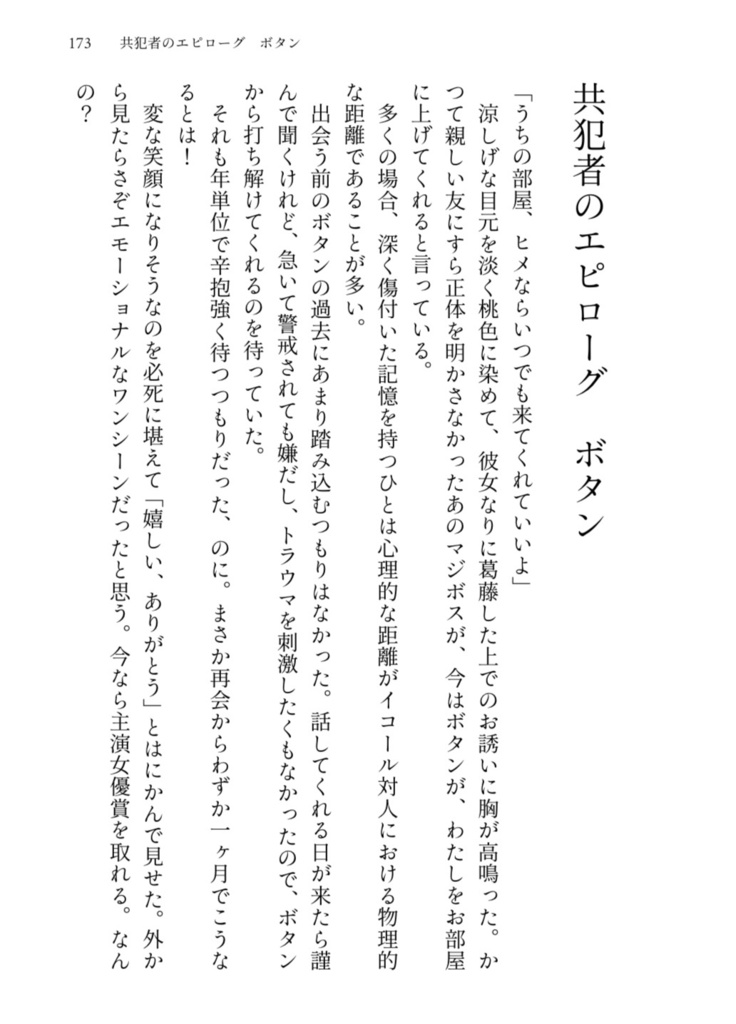 173　共犯者のエピローグ　ボタン
共犯者のエピローグ　ボタン
「うちの部屋、ヒメならいつでも来てくれていいよ」
　涼しげな目元を淡く桃色に染めて、彼女なりに葛藤した上でのお誘いに胸が高鳴った。か
つて親しい友にすら正体を明かさなかったあのマジボスが、今はボタンが、わたしをお部屋
に上げてくれると言っている。
　多くの場合、深く傷付いた記憶を持つひとは心理的な距離がイコール対人における物理的
な距離であることが多い。
　出会う前のボタンの過去にあまり踏み込むつもりはなかった。話してくれる日が来たら謹
んで聞くけれど、急いて警戒されても嫌だし、トラウマを刺激したくもなかったので、ボタン
から打ち解けてくれるのを待っていた。
　それも年単位で辛抱強く待つつもりだった、のに。まさか再会からわずか一ヶ月でこうな
るとは！
　変な笑顔になりそうなのを必死に堪えて「嬉しい、ありがとう」とはにかんで見せた。外か
ら見たらさぞエモーショナルなワンシーンだったと思う。今なら主演女優賞を取れる。なん
の？